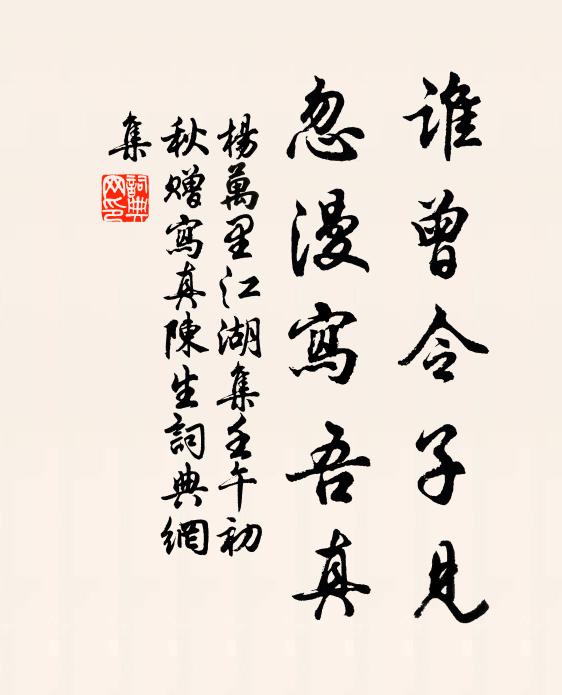 誰曾令子見
忽漫寫吾真
楊萬里江湖集壬午初
秋贈寫真陳生詞典網
集
詞典
网印